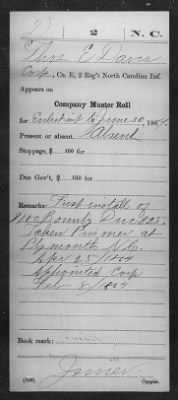 D 2 N.C.
Thos E Davis
Corp, Co. E, 2 Reg't North Carolina Inf.
Appears on
Company Muster Roll
for Enlistment to June 30, 1864.
Present or absent Absent
Stoppage, $ 100 for
Due Gov't, $ 100 for
Remarks: First install of
$100 Bounty Due $25.
Taken Prisoner at
Plymouth N.C.
Apr 25/1864
Appointed Corp
Feb 8/1864
Book mark:
Joiner
Copyist.